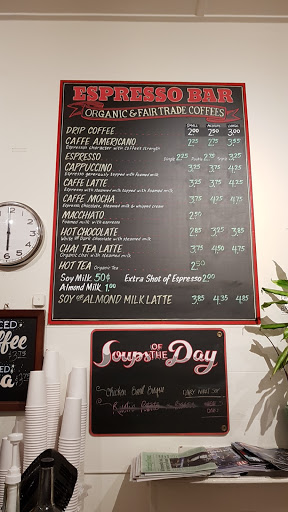 ESPRESSO BAR
ORGANIC & FAIR TRADE COFFEES
SMALL MEDIUM LARGE
DRIP COFFEE 2.00 2.50 3.00
CAFFE AMERICANO 2.25 2.75 3.25
Espresso character with coffee's strength
ESPRESSO Single 2.25 Double 2.75 Triple 3.25
CAPPUCCINO 3.25 3.75 4.25
Espresso generously topped with foamed milk
CAFFE LATTE 3.25 3.75 4.25
Espresso with steamed milk topped with foamed milk
CAFFE MOCHA 3.75 4.25 4.75
Espresso, Chocolate, steamed milk & whipped cream
MACCHIATO 2.50
Foamed milk with espresso
HOT CHOCOLATE 2.85 3.25 3.55
White or Dark chocolate with steamed milk
CHAI TEA LATTE 3.75 4.50 4.75
Organic chai with steamed milk
HOT TEA Organic Tea 2.50
Soy Milk 50¢ Extra Shot of Espresso 2.00
Almond Milk 1.00
SOY OR ALMOND MILK LATTE 3.85 4.35 4.85
Soups OF THE Day
Chicken
CED
ffee
CED
a